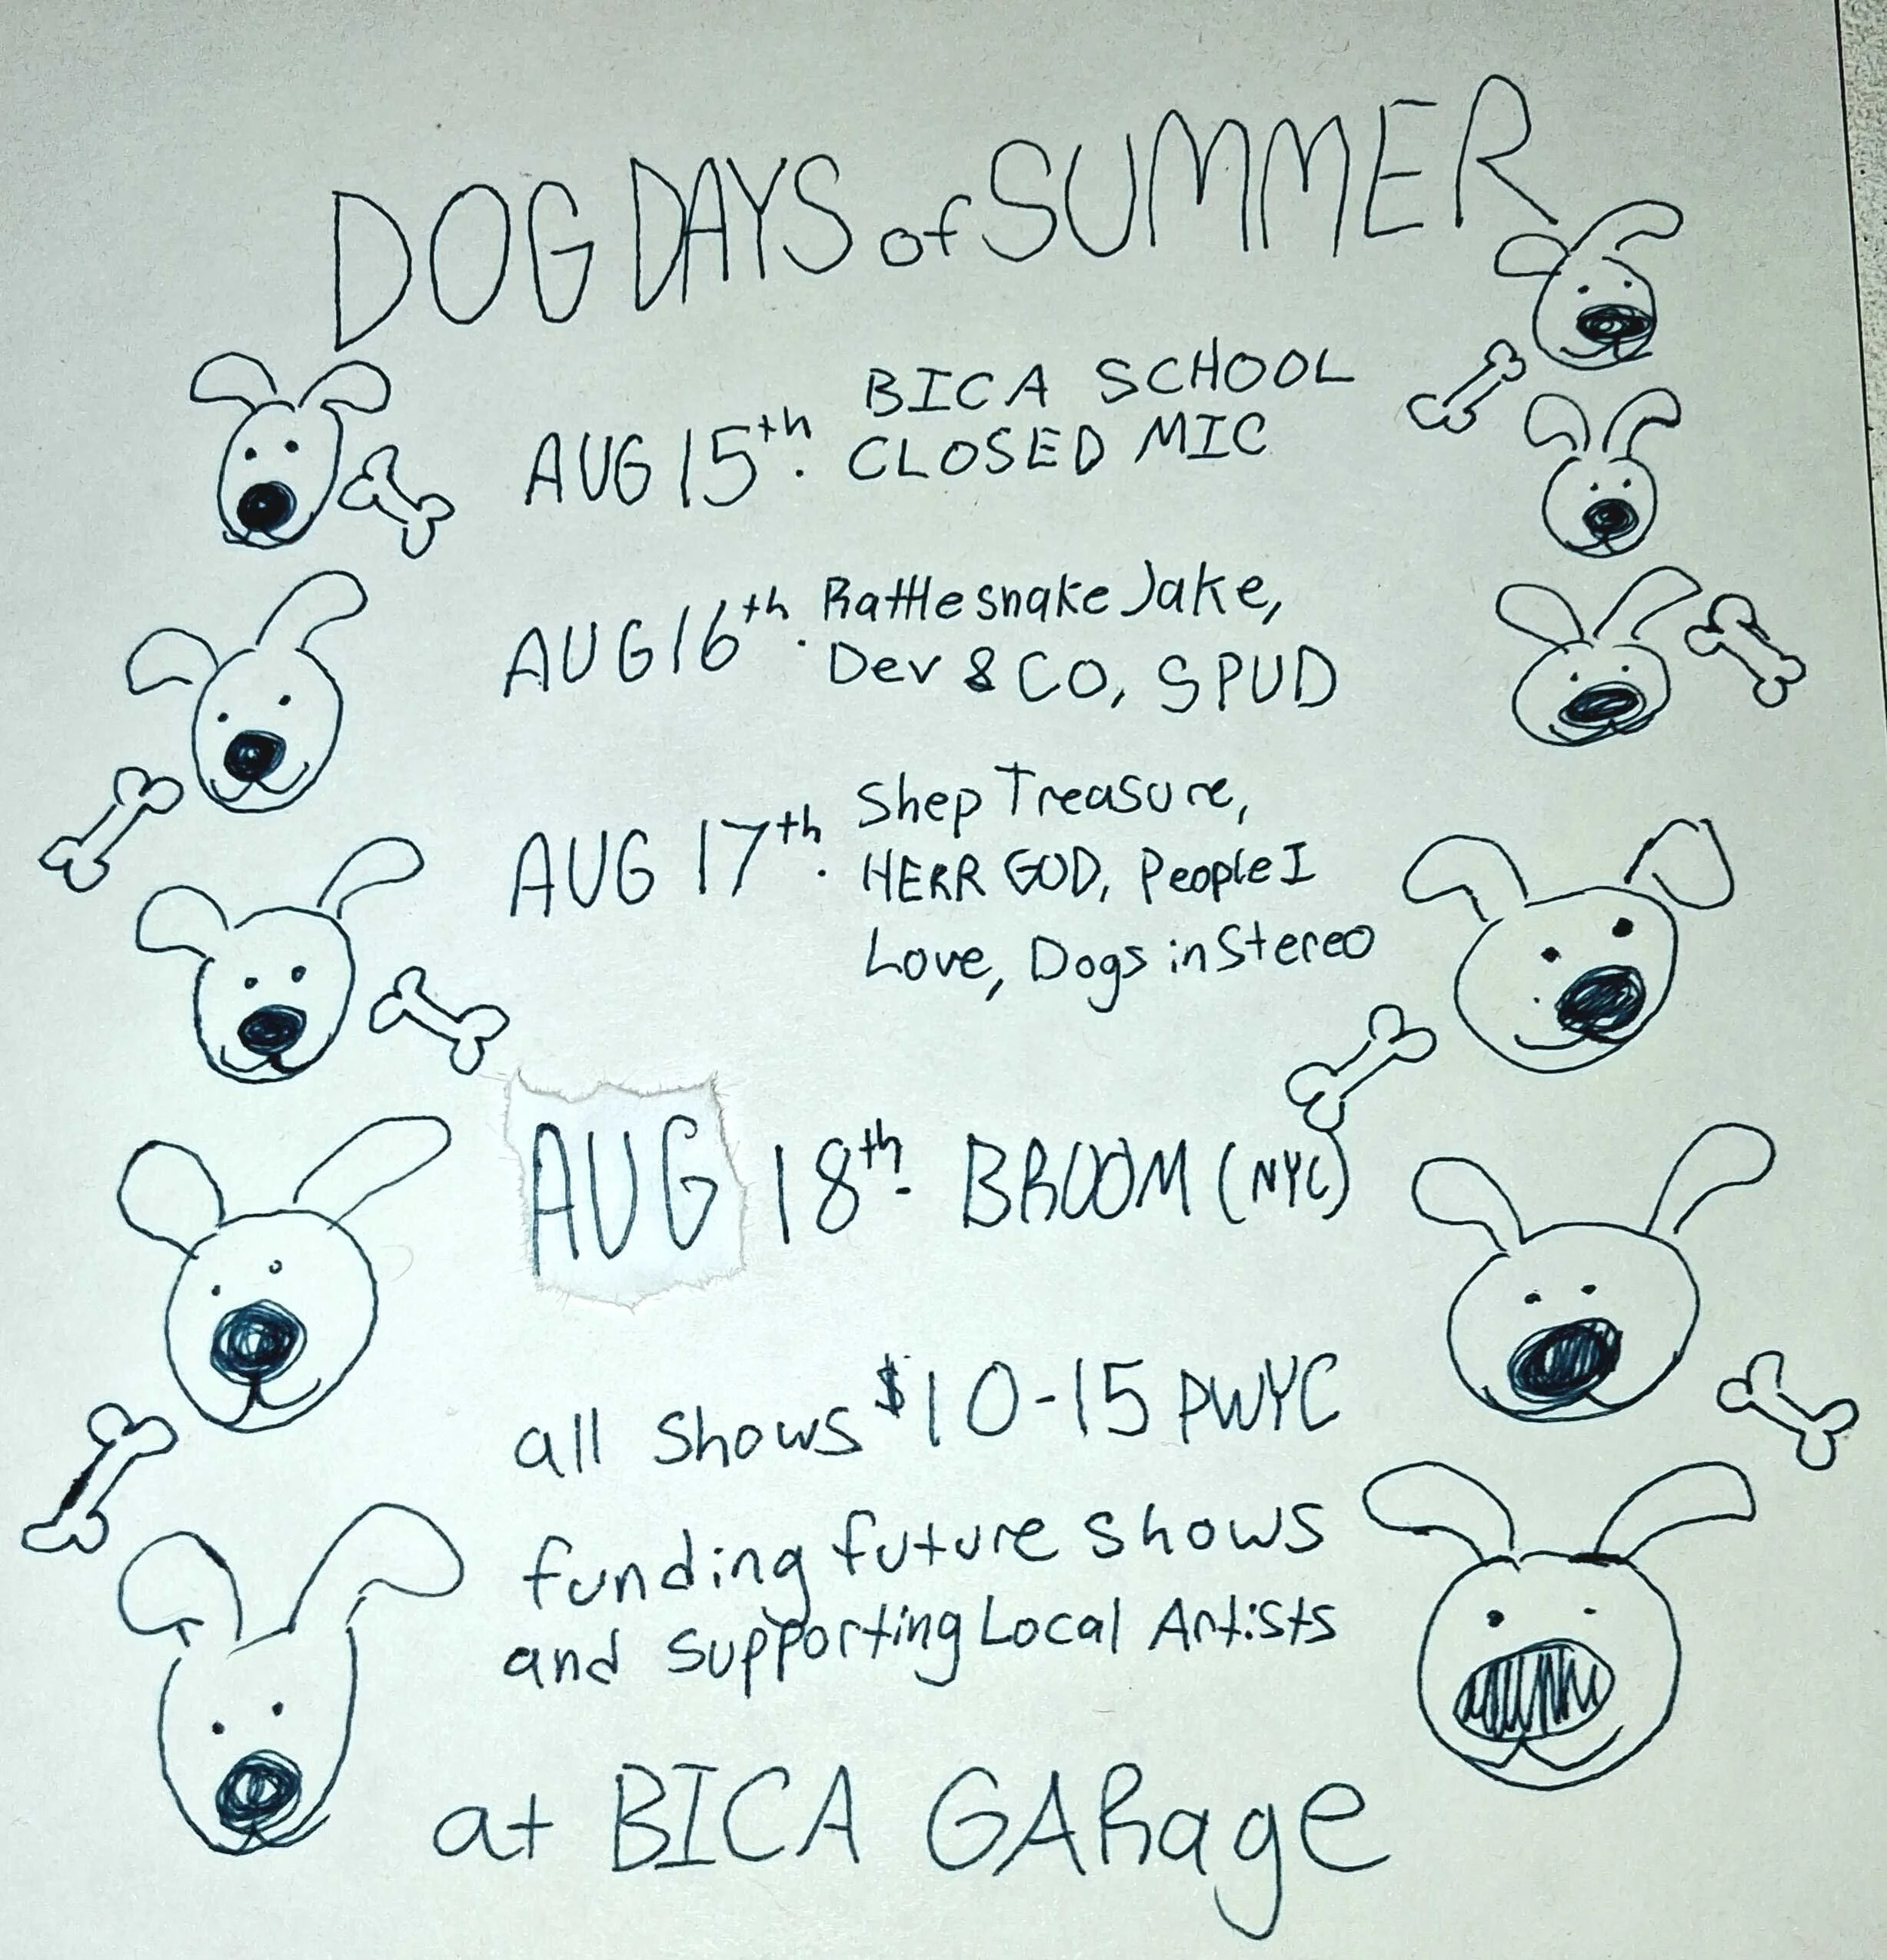 DOG DAYS of SUMMER
BICA SCHOOL
AUG 15th. CLOSED MIC
AUG 16th. Rattlesnake Jake,
Dev & CO, SPUD
Shep Treasure,
AUG 17th. HERR GOD, People I
Love, Dogs in Stereo
AUG 18th. BROOM (NYC)
all shows $10-15 PWYC
funding future shows
and supporting Local Artists
at BICA GARage